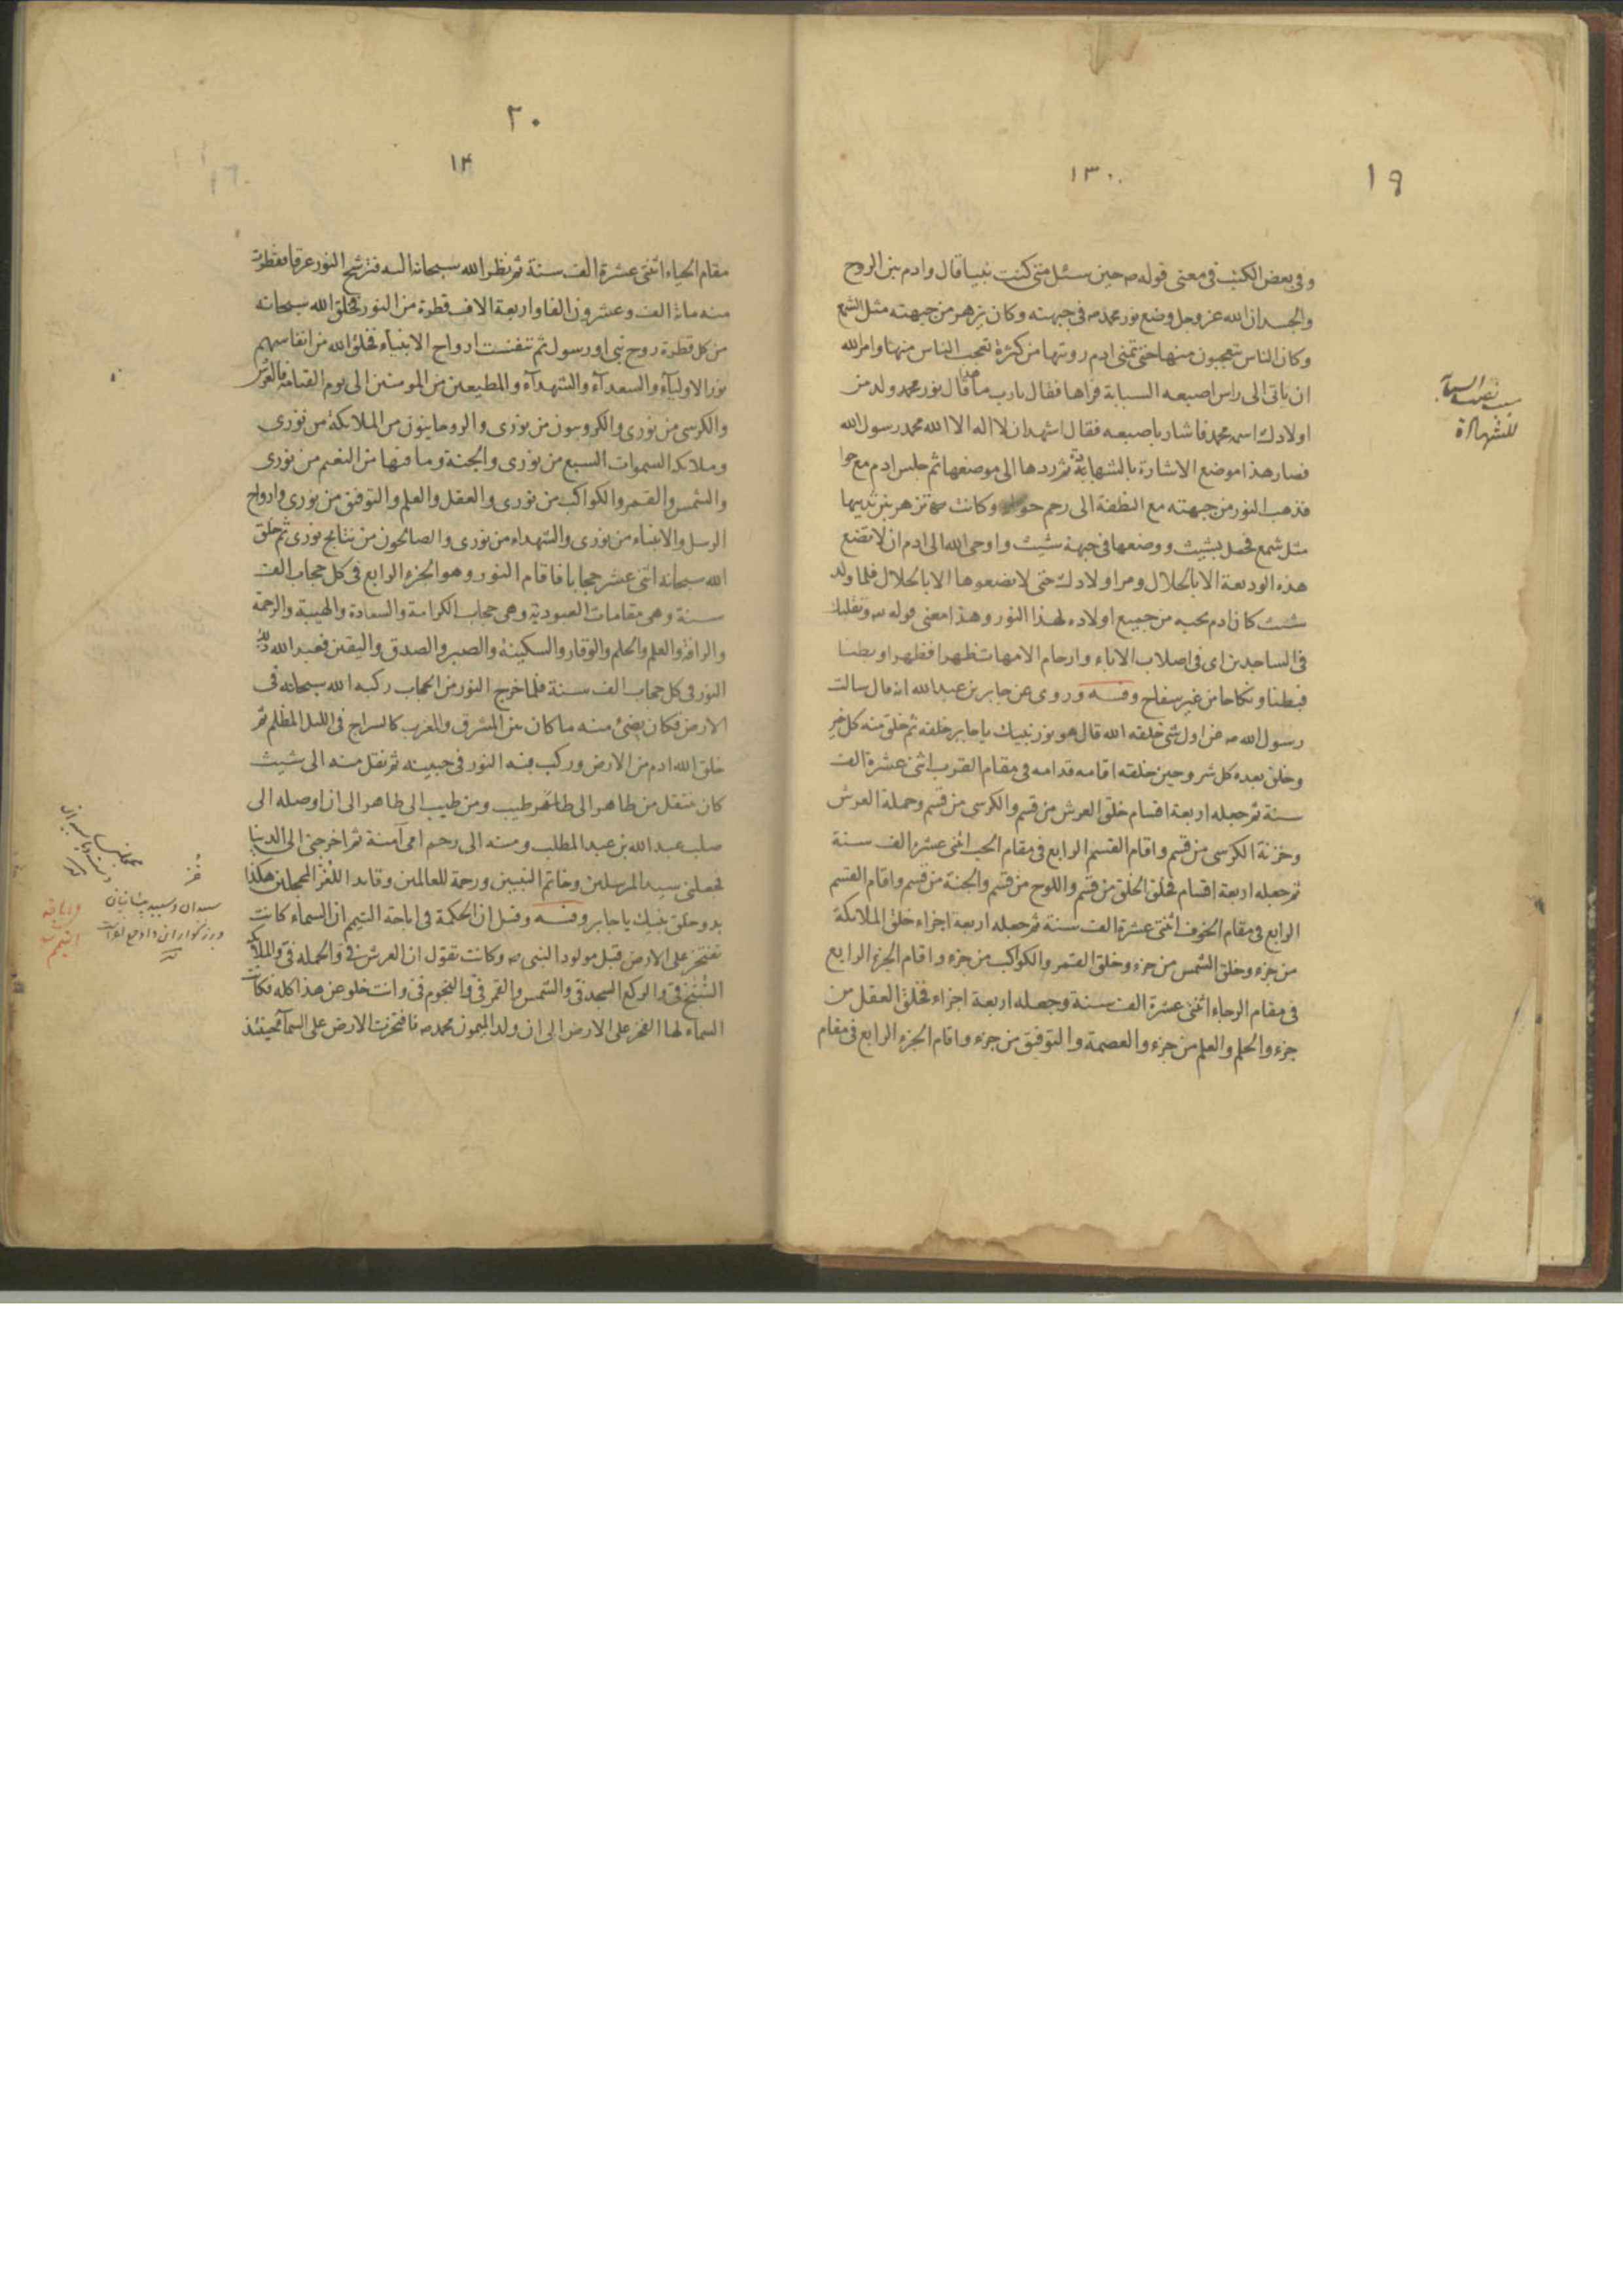 ١٩
١٣٠
وفى بعض الكتب فى معنى قوله ص حين سئل متى كنت نبيا قال وادم بين الروح
والجسد ان الله عز وجل وضع نور محمد ص فى جبهته وكان يزهر من جبهته مثل الشمع
وكان الناس تتعجبون منها حتى تمنى ادم رويتها من كثرة تعجب الناس منها وامر الله
ان ياتى الى راس اصبعه السبابة فراها فقال يارب ما هذا قال نور محمد ولد من
اولادك اسمه محمد فاشار باصبعه فقال اشهد ان لا اله الا الله محمد رسول الله
فصار هذا موضع الاشارة بالشهادة ثم ردها الى موضعها ثم جلس ادم مع حوا
فذهب النور من جبهته مع النطفة الى رحم حوا وكانت تزهر بين ثدييها
مثل شمع فحمل بشيث ووضعها فى جبهة شيث واوحى الله الى ادم ان لا تضع
هذه الوديعة الا بالحلال ومر اولادك حتى لا يضعوها الا بالحلال فلما ولد
شيث كان ادم يحبه من جميع اولاده لهذا النور وهذا معنى قوله وتقلبك
فى الساجدين اى فى اصلاب الاباء وارحام الامهات ظهرا فظهرا وبطنا
فبطنا ونكاحا من غير سفاح وفيه وروى عن جابر بن عبد الله انه قال سالت
رسول الله ص عن اول شئ خلقه الله قال هو نور نبيك يا جابر خلقه ثم خلق منه كل خير
وخلق بعده كل شر وحين خلقه اقامه قدامه فى مقام القرب اثنى عشرة الف
سنة ثم جعله اربعة اقسام خلق العرش من قسم والكرسى من قسم وحملة العرش
وخزنة الكرسى من قسم واقام القسم الرابع فى مقام الحب اثنى عشر الف سنة
ثم جعله اربعة اقسام فخلق الخلق من قسم واللوح من قسم والجنة من قسم واقام القسم
الرابع فى مقام الخوف اثنى عشرة الف سنة ثم جعله اربعة اجزاء خلق الملائكة
من جزء وخلق الشمس من جزء وخلق القمر والكواكب من جزء واقام الجزء الرابع
فى مقام الرجاء اثنى عشرة الف سنة وجعله اربعة اجزاء فخلق العقل من
جزء والحلم والعلم من جزء والعصمة والتوفيق من جزء واقام الجزء الرابع فى مقام
للشهادة
٢٠
١٤
مقام الحياء اثنى عشرة الف سنة ثم نظر الله سبحانه اليه فترشح النور عرقا فقطرت
منه مائة الف وعشرون الفا واربعة الاف قطرة من النور فخلق الله سبحانه
من كل قطرة روح نبى او رسول ثم تنفست ارواح الانبياء فخلق الله من انفاسهم
نور الاولياء والسعداء والشهداء والمطيعين من المومنين الى يوم القيامة فالعرش
والكرسى من نورى والكروبيون من نورى والروحانيون من الملائكة من نورى
وملائكة السموات السبع من نورى والجنة وما فيها من النعيم من نورى
والشمس والقمر والكواكب من نورى والعقل والعلم والتوفيق من نورى وارواح
الرسل والانبياء من نورى والشهداء من نورى والصالحون من نتايج نورى ثم خلق
الله سبحانه اثنى عشر حجابا فاقام النور وهو الجزء الرابع فى كل حجاب الف
سنة وهى مقامات العبودية وهى حجاب الكرامة والسعادة والهيبة والرحمة
والرافة والعلم والحلم والوقار والسكينة والصبر والصدق واليقين فعبد الله ذلك
النور فى كل حجاب الف سنة فلما خرج النور من الحجاب ركبه الله سبحانه فى
الارض فكان يضئ منه ما كان بين المشرق والمغرب كالسراج فى الليل المظلم ثم
خلق الله ادم من الارض وركب فيه النور فى جبينه ثم نقل منه الى شيث
كان ينتقل من طاهر الى طاهر ومن طيب الى طاهر الى ان اوصله الى
صلب عبد الله بن عبد المطلب ومنه الى رحم امى آمنة ثم اخرجنى الى الدنيا
فجعلنى سيد المرسلين وخاتم النبيين ورحمة للعالمين وقايد الغر المحجلين هكذا
بدو خلق نبيك يا جابر وفيه وقيل ان الحكمة فى اباحة التيمم ان السماء كانت
تفتخر على الارض قبل مولود النبى ص وكانت تقول ان العرش فى والحملة فى والملائكة
المسبح فى والركع السجد فى والشمس والقمر فى والنجوم فى وانت خلو عن هذا كله فكانت
السماء لها الفخر على الارض الى ان ولد الميمون محمد ص فافتخرت الارض على السماء فحينئذ